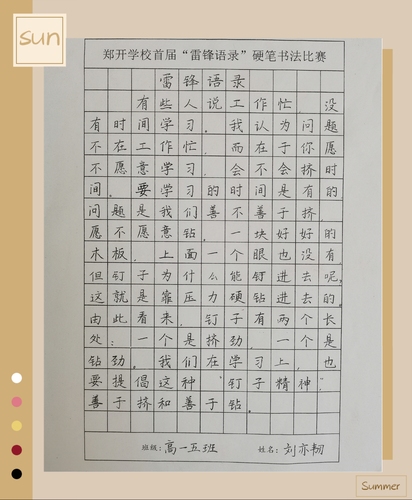 sun
郑开学校首届“雷锋语录”硬笔书法比赛
雷锋语录
有些人说工作忙、没
有时间学习。我认为问题
不在工作忙,而在于你愿
不愿意学习,会不会挤时
间。要学习的时间是有的
问题是我们善不善于挤,
愿不愿意钻。一块好好的
木板,上面一个眼也没有
但钉子为什么能钉进去呢,
这就是靠压力硬钻进去的。
由此看来,钉子有两个长
处:一个是挤劲,一个是
钻劲。我们在学习上,也
要提倡这种“钉子精神”
善于挤和善于钻。
班级:高一五班 姓名:刘亦籾
Summer